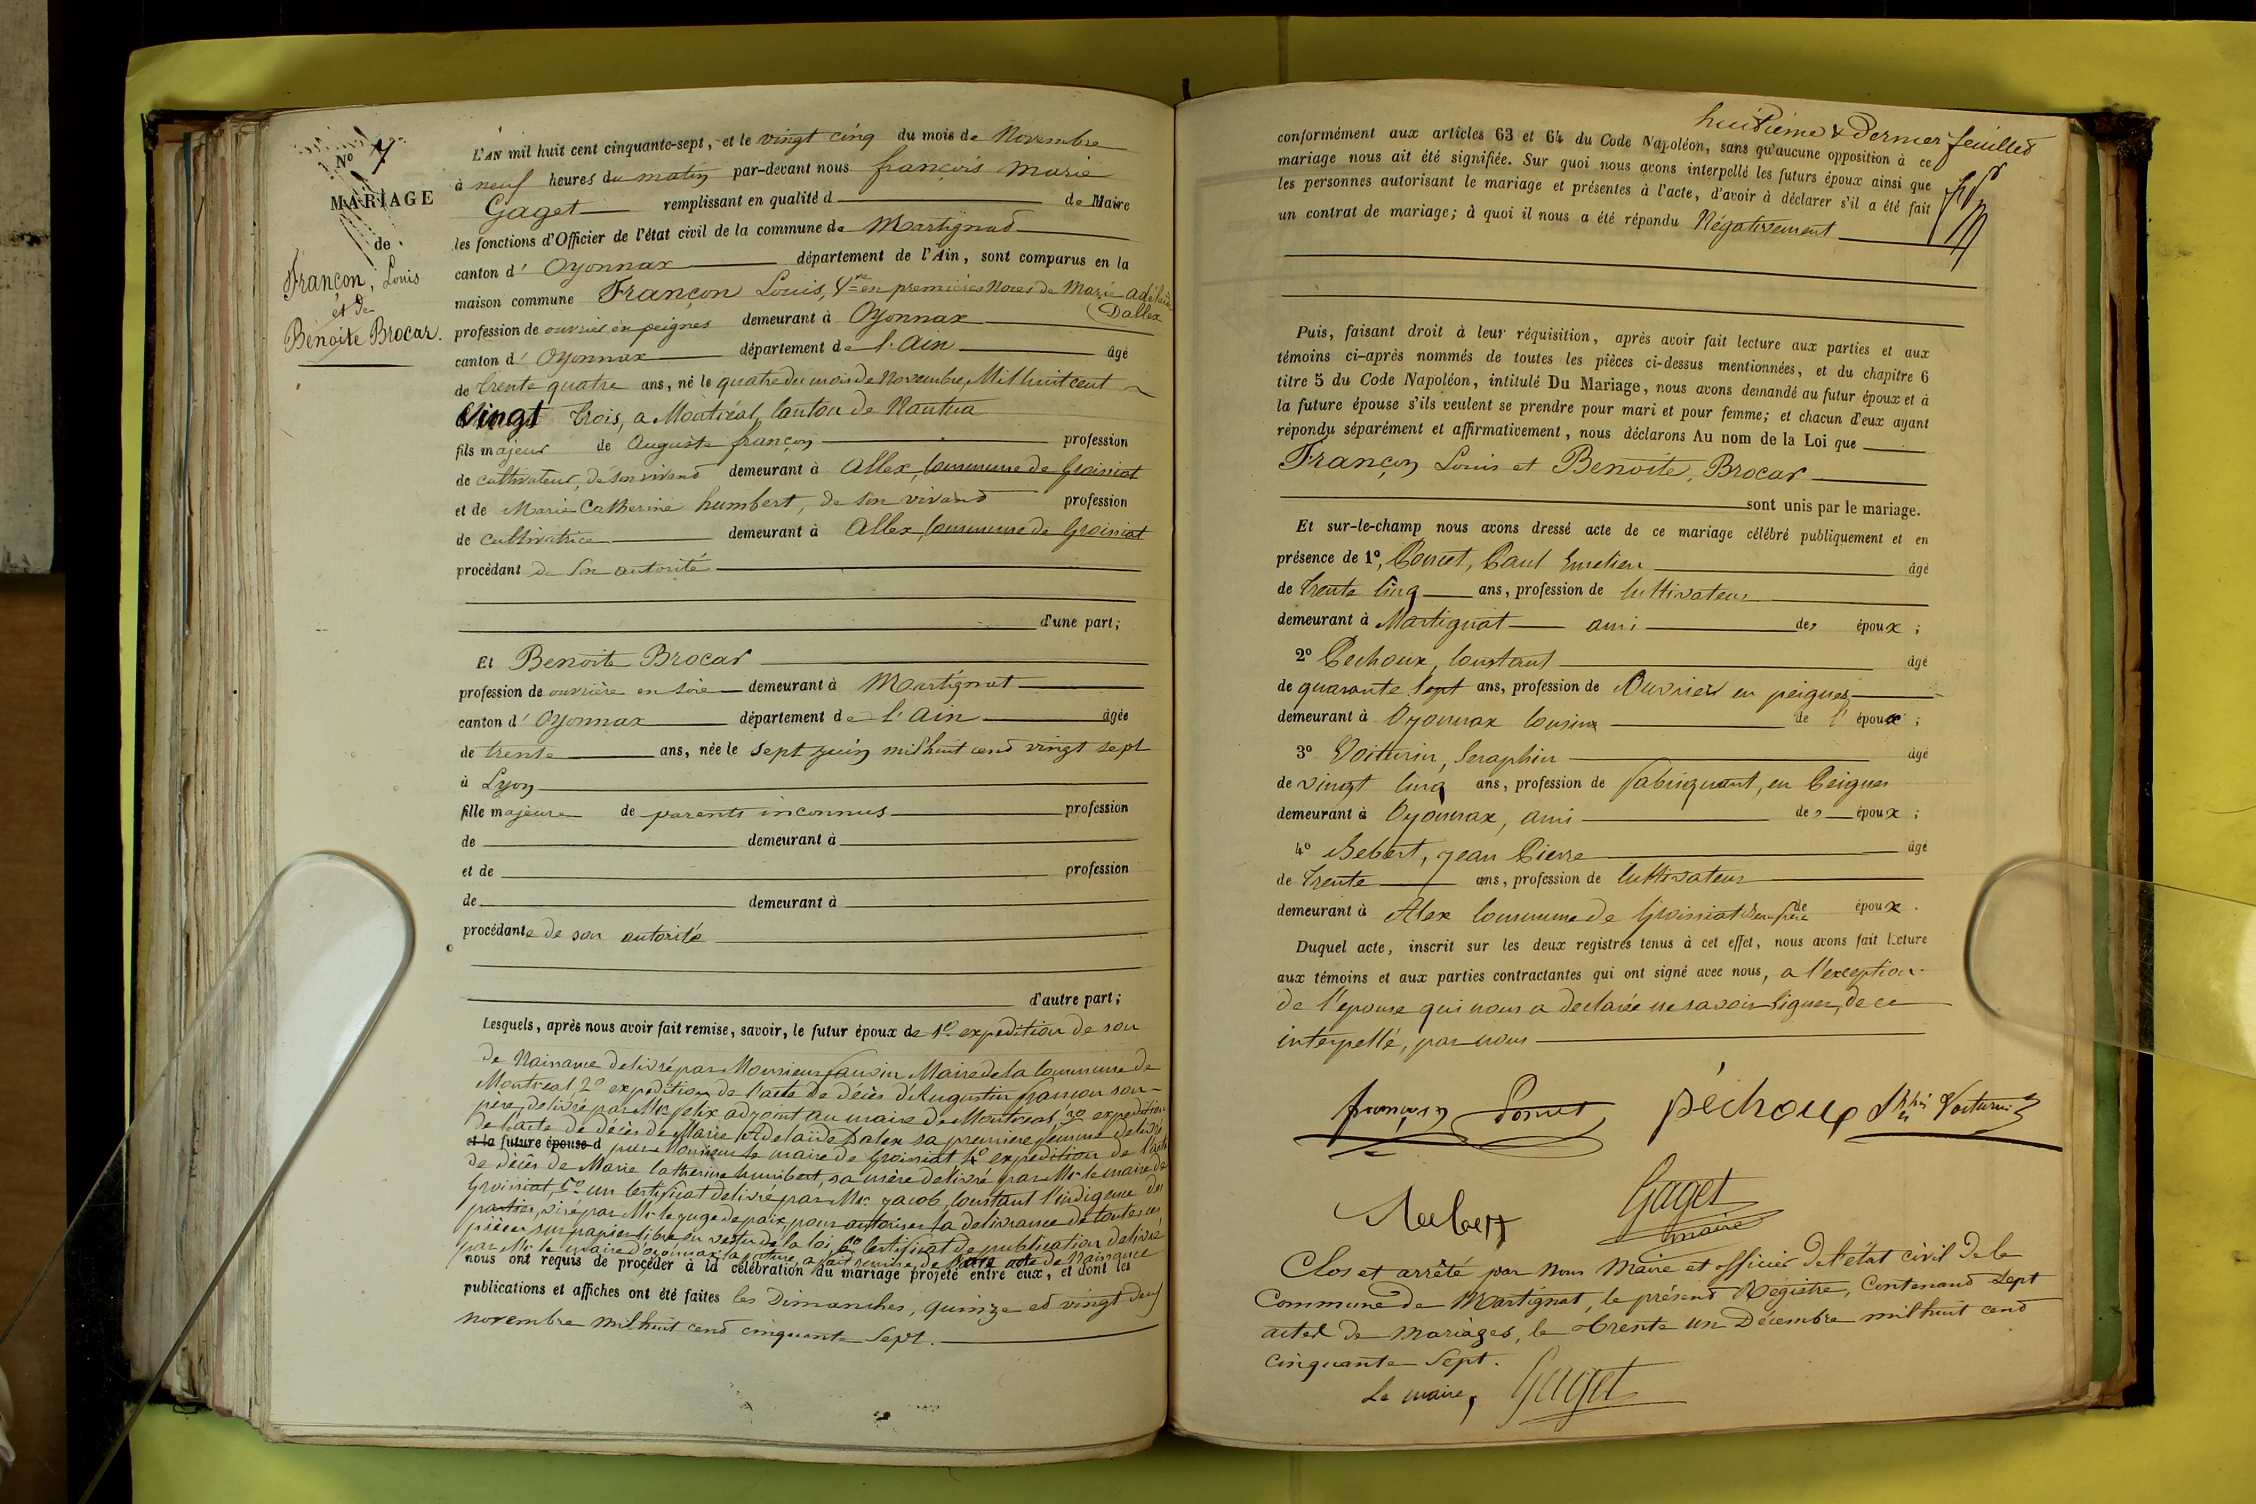 N° 7
MARIAGE
de
Françon, Louis
et de
Benoite Brocar.
L'AN mil huit cent cinquante-sept, et le vingt cinq du mois de Novembre
à neuf heures du matin par-devant nous françois Marie
Gaget remplissant en qualité d de Maire
les fonctions d'Officier de l'état civil de la commune de Martignat
canton d' Oyonnax département de l'Ain, sont comparus en la
maison commune Françon Louis, Vve en premières Noces de Marie Adélaide
Dallex
profession de ouvrier en peignes demeurant à Oyonnax
canton d' Oyonnax département de l'Ain âgé
de trente quatre ans, né le quatre du mois de Novembre Mil huit cent
Vingt trois, a Montréal, Canton de Nantua
fils majeur de Auguste françon profession
de cultivateur, de son vivand demeurant à Allex, Commune de Groissiat
et de Marie Catherine humbert, de son vivand profession
de cultivatrice demeurant à Allex, Commune de Groissiat
procédant de son autorité
d'une part;
Et Benoite Brocar
profession de ouvrière en soie demeurant à Martignat
canton d' Oyonnax département de l'Ain âgée
de trente ans, née le sept juin mil huit cend vingt sept
à Lyon
fille majeure de parents inconnus profession
de demeurant à
et de profession
de demeurant à
procédante de son autorité
d'autre part;
Lesquels, après nous avoir fait remise, savoir, le futur époux de 1° expedition de son
de Naisance delivré par Monsieur Maire de la Commune de
Montreal, 2° expedition de l'acte de décès d'Augustin françon son
père, delivré par Mr felix adjoint au maire de Montreal, 3° expedition
de l'acte de décès de Marie Adelaide Dalex sa premiere femme delivré
et la future épouse d par Monsieur le maire de Groissiat 4° expedition de l'acte
de décès de Marie Catherine humbert, sa mère delivré par Mr le maire de
Groissiat, 5° un Certificat delivré par Mr Jacob, Constant l'indigence des
parties, visé par Mr le juge de paix, pour autoriser la delivrance de toutes ces
pièces sur papier libre en vertu de la loi, 6° Certificat de publication delivré
par Mr le maire d'oyonnax, la future, a fait remise, de acte de Naisance
nous ont requis de procéder à la célébration du mariage projeté entre eux, et dont les
publications et affiches ont été faites les Dimanches, quinze et vingt deux
novembre mil huit cend cinquante Sept.
huitième & Dernier feuilled
conformément aux articles 63 et 64 du Code Napoléon, sans qu'aucune opposition à ce
mariage nous ait été signifiée. Sur quoi nous avons interpellé les futurs époux ainsi que
les personnes autorisant le mariage et présentes à l'acte, d'avoir à déclarer s'il a été fait
un contrat de mariage; à quoi il nous a été répondu Négativement
Puis, faisant droit à leur réquisition, après avoir fait lecture aux parties et aux
témoins ci-après nommés de toutes les pièces ci-dessus mentionnées, et du chapitre 6
titre 5 du Code Napoléon, intitulé Du Mariage, nous avons demandé au futur époux et à
la future épouse s'ils veulent se prendre pour mari et pour femme; et chacun d'eux ayant
répondu séparément et affirmativement, nous déclarons Au nom de la Loi que
Françon Louis et Benoite, Brocar
sont unis par le mariage.
Et sur-le-champ nous avons dressé acte de ce mariage célébré publiquement et en
présence de 1°, Poncet, Paul Emelien âgé
de trente Cinq ans, profession de Cultivateur
demeurant à Martignat ami des époux;
2° Pechoux, Constant âgé
de quarante Sept ans, profession de Ouvrier en peignes
demeurant à Oyonnax Cousin de l' époux;
3° Voiturin, Seraphin âgé
de vingt Cinq ans, profession de fabriquant, en Peignes
demeurant à Oyonnax, ami des époux;
4° Hebert, Jean Pierre âgé
de trente ans, profession de Cultivateur
demeurant à Alex Commune de Groissiat de époux.
Duquel acte, inscrit sur les deux registres tenus à cet effet, nous avons fait lecture
aux témoins et aux parties contractantes qui ont signé avec nous, a l'exception
de l'epouse qui nous a declarée ne savoir signer, de ce
interpellé, par nous
françon Poncet péchoux Voiturin
Gaget
maire
Clos et arrêté par Nous Maire et officier de l'état civil de la
Commune de Martignat, le présend Régistre, Contenand Sept
actes de Mariages, le trente un Décembre mil huit cend
cinquante Sept.
Le maire, Gaget